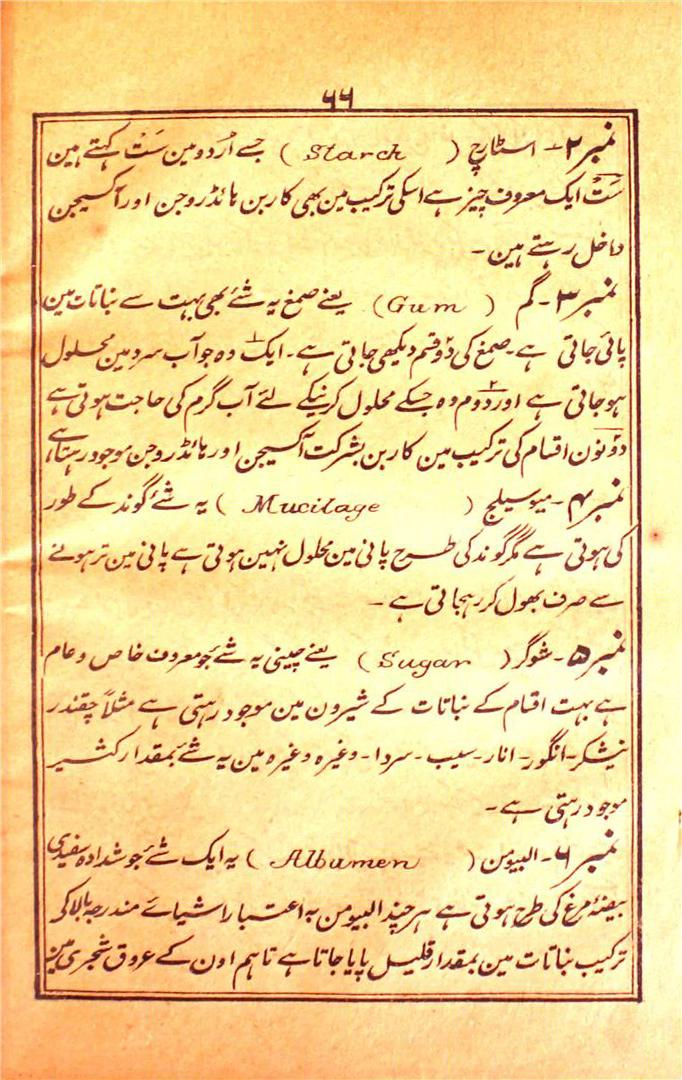 ۶۶
نمبر۲۔ اسٹارچ (Starch) جسے اُردو مین سَتْ کہتے ہین
سَتْ ایک معروف چیز ہے اسکی ترکیب مین بھی کاربن ہائڈروجن اور آکسیجن
داخل رہتے ہین۔
نمبر۳۔ گم (Gum) یعنے صمغ یہ شئے بھی بہت سے نباتات مین
پائی جاتی ہے۔ صمغ کی دو قسم دیکھی جاتی ہے۔ ایک وہ جو آب سرد مین محلول
ہوجاتی ہے اور دوم وہ جسکے محلول کرنیکے لئے آب گرم کی حاجت ہوتی ہے
دونون اقسام کی ترکیب مین کاربن بشرکت آکسیجن اور ہائڈروجن موجود رہتا ہے،
نمبر۴۔ میوسیلج (Mucilage) یہ شئے گوند کے طور
کی ہوتی ہے مگر گوند کی طرح پانی مین محلول نہین ہوتی ہے پانی مین تر ہونے
سے صرف پھول کر رہجاتی ہے۔
نمبر۵۔ شوگر (Sugar) یعنے چینی یہ شئے جو معروف خاص و عام
ہے بہت اقسام کے نباتات کے شیرون مین موجود رہتی ہے مثلاً چقندر
نیشکر۔ انگور۔ انار۔ سیب۔ سردا۔ وغیرہ وغیرہ مین یہ شئے بمقدار کثیر
موجود رہتی ہے۔
نمبر۶۔ البیومن (Albumen) یہ ایک شئے جوشدادہ سفیدی
بیضۂ مرغ کی طرح ہوتی ہے ہر چند البیومن بہ اعتبار اشیائے مندرجہ بالا کی
ترکیب نباتات مین بمقدار قلیل پایا جاتا ہے تاہم اون کے عروق شجری مین